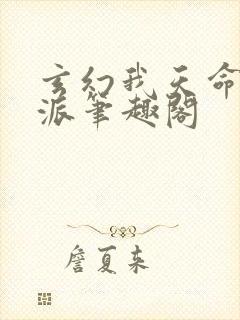 玄幻我天命
派笔趣阁
詹夏来